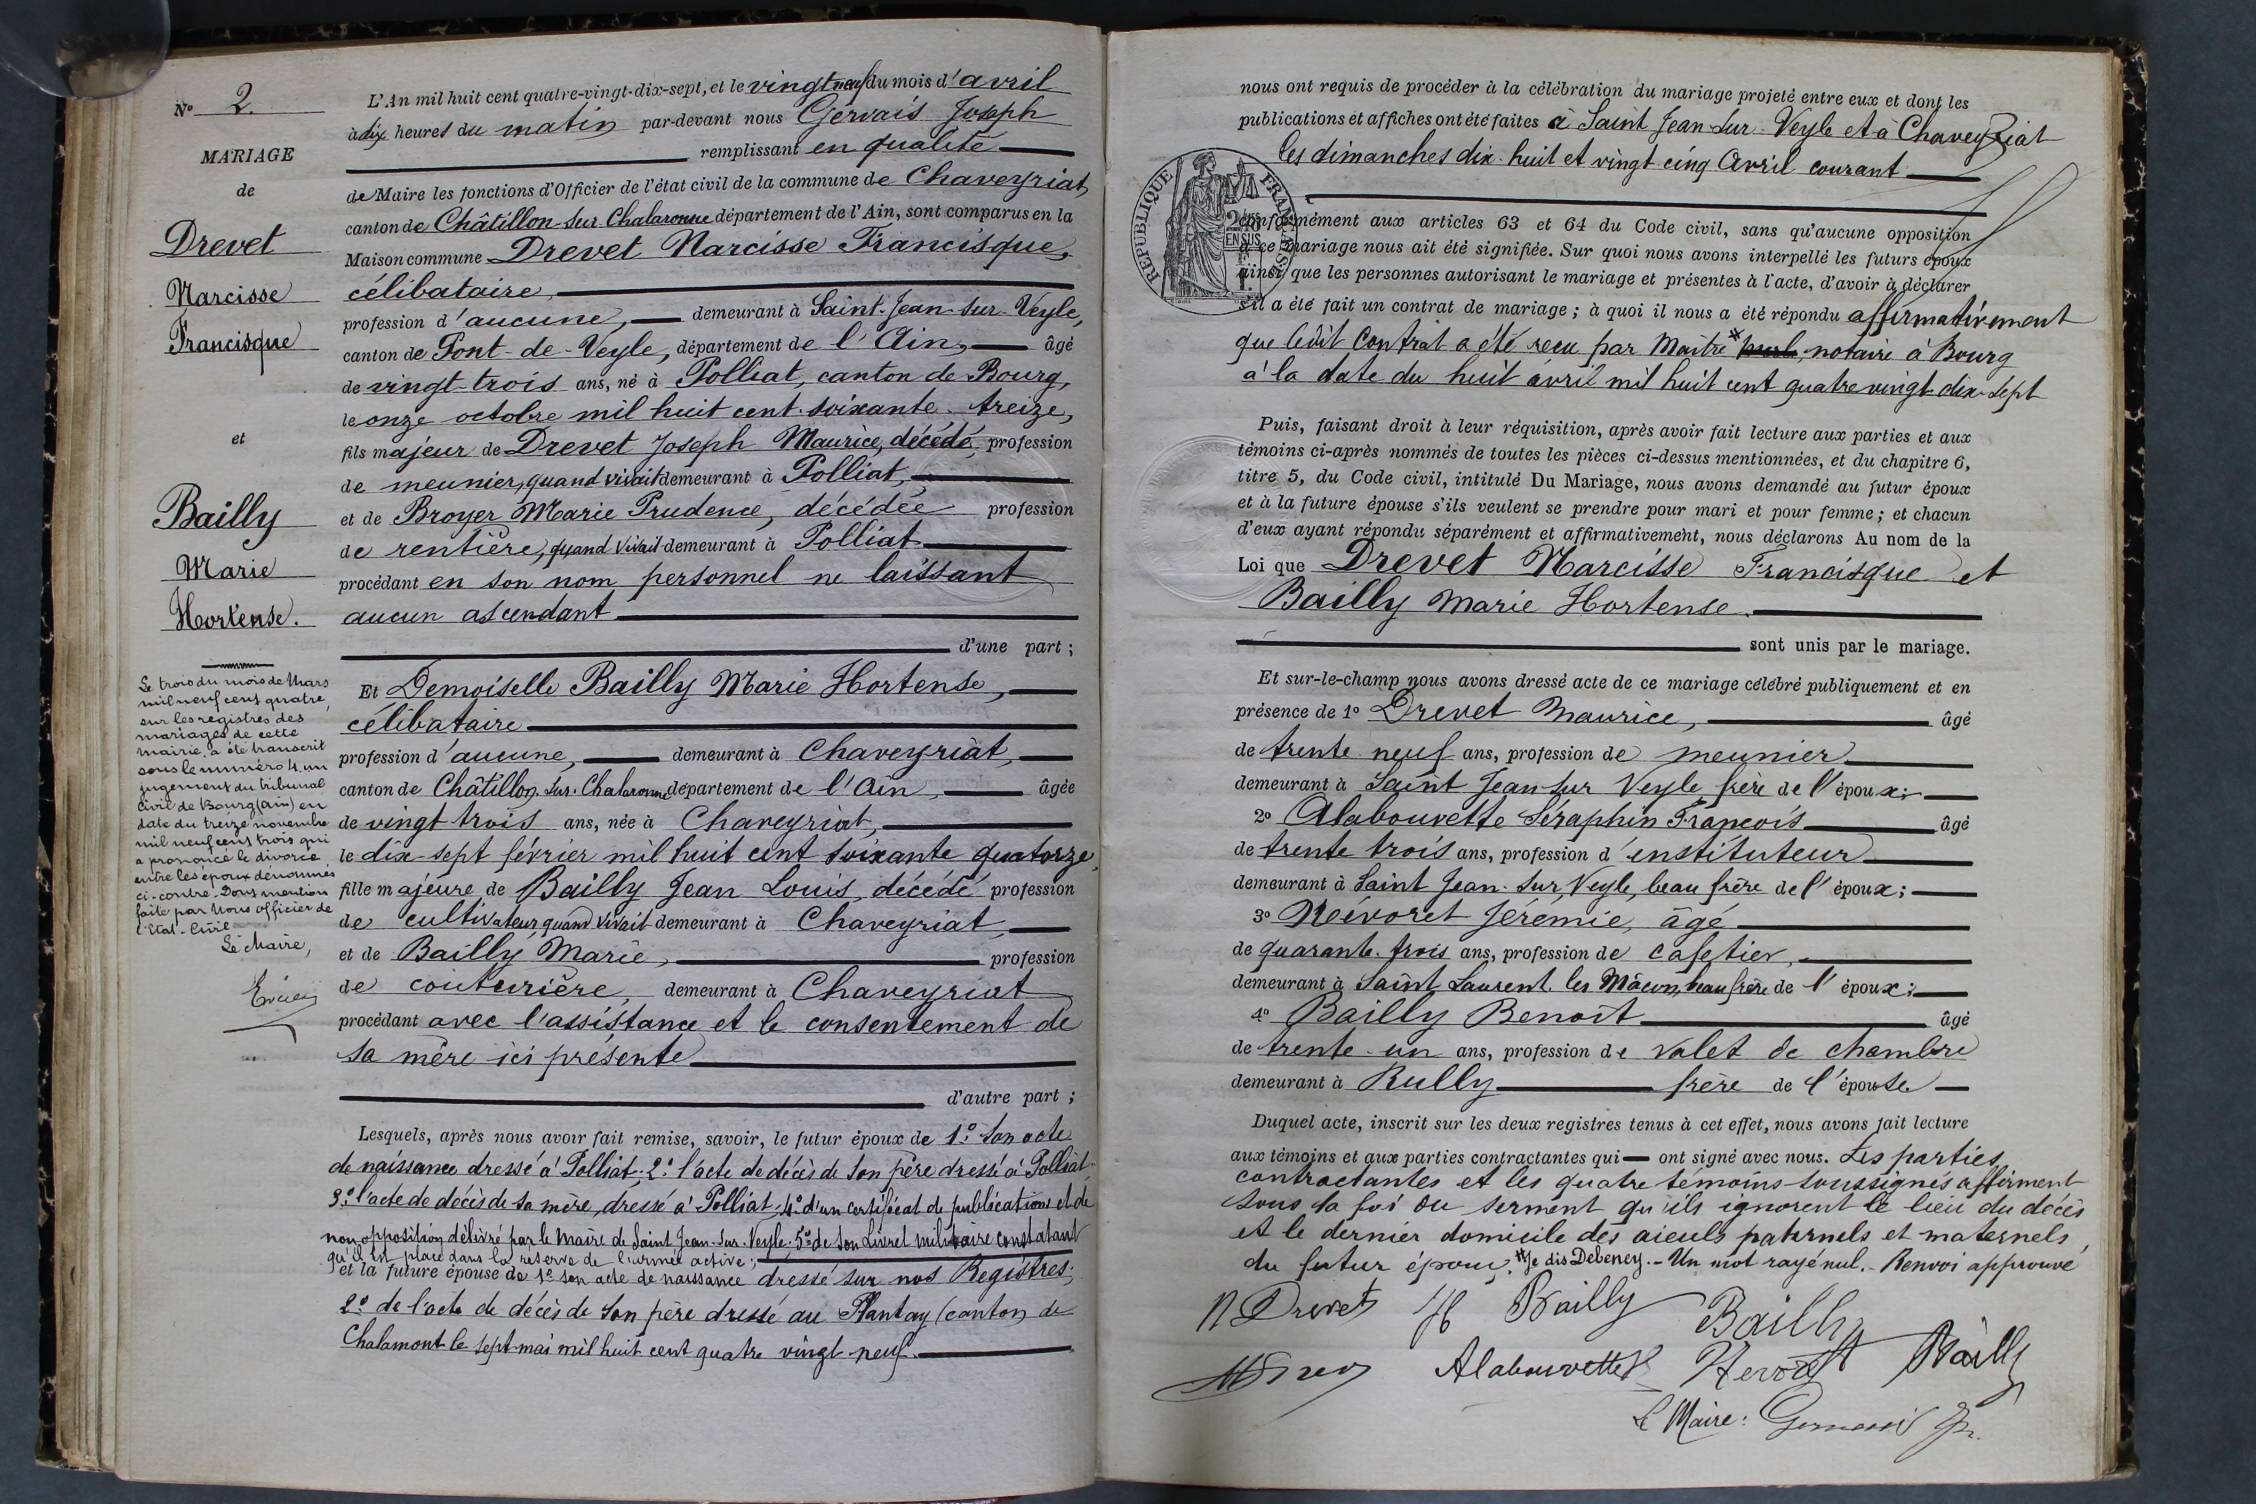 N° 2.
MARIAGE
de
Drevet
Narcisse
Francisque
et
Bailly
Marie
Hortense.
Le trois du mois de Mars
mil neuf cent quatre,
sur les registres des
mariages de cette
mairie, a été transcrit
sous le numéro 4, un
jugement du tribunal
civil de Bourg (Ain) en
date du treize novembre
mil neuf cent trois qui
a prononcé le divorce
entre les époux dénommés
ci-contre. Dont mention
faite par Nous officier de
l'Etat-Civil
Le Maire,
L'An mil huit cent quatre-vingt-dix-sept, et le vingt neuf du mois d'avril
à dix heures du matin par-devant nous Gervais Joseph
remplissant en qualité
de Maire les fonctions d'Officier de l'état civil de la commune de Chaveyriat,
canton de Châtillon-sur-Chalaronne département de l'Ain, sont comparus en la
Maison commune Drevet Narcisse Francisque,
célibataire,
profession d'aucune, demeurant à Saint-Jean-sur-Veyle,
canton de Pont-de-Veyle, département de l'Ain, âgé
de vingt-trois ans, né à Polliat, canton de Bourg,
le onze octobre mil huit cent soixante-treize,
fils majeur de Drevet Joseph Maurice, décédé, profession
de meunier, quand vivait demeurant à Polliat,
et de Broyer Marie Prudence, décédée profession
de rentière, quand vivait demeurant à Polliat
procédant en son nom personnel ne laissant
aucun ascendant
d'une part ;
Et Demoiselle Bailly Marie Hortense,
célibataire
profession d'aucune, demeurant à Chaveyriat,
canton de Châtillon-sur-Chalaronne département de l'Ain, âgée
de vingt trois ans, née à Chaveyriat,
le dix-sept février mil huit cent soixante quatorze,
fille majeure de Bailly Jean Louis, décédé profession
de cultivateur, quand vivait demeurant à Chaveyriat,
et de Bailly Marie, profession
de couturière, demeurant à Chaveyriat
procédant avec l'assistance et le consentement de
sa mère ici présente
d'autre part ;
Lesquels, après nous avoir fait remise, savoir, le futur époux de 1° son acte
de naissance dressé à Polliat; 2° l'acte de décès de son père dressé à Polliat
3° l'acte de décès de sa mère, dressé à Polliat; 4° d'un certificat de publications et de
non opposition délivré par le Maire de Saint-Jean-sur-Veyle; 5° de son Livret militaire constatant
qu'il est placé dans la réserve de l'armée active;
et la future épouse de 1° son acte de naissance dressé sur nos Registres;
2° de l'acte de décès de son père dressé au Plantay (canton de
Chalamont le sept mai mil huit cent quatre vingt-neuf.
nous ont requis de procéder à la célébration du mariage projeté entre eux et dont les
publications et affiches ont été faites à Saint Jean-sur-Veyle et à Chaveyriat
les dimanches dix-huit et vingt cinq Avril courant
RÉPUBLIQUE FRANÇAISE
conformément aux articles 63 et 64 du Code civil, sans qu'aucune opposition
à ce mariage nous ait été signifiée. Sur quoi nous avons interpellé les futurs époux
ainsi que les personnes autorisant le mariage et présentes à l'acte, d'avoir à déclarer
s'il a été fait un contrat de mariage ; à quoi il nous a été répondu affirmativement
que ledit Contrat a été reçu par Maître * notaire à Bourg
à la date du huit avril mil huit cent quatre vingt-dix-sept
Puis, faisant droit à leur réquisition, après avoir fait lecture aux parties et aux
témoins ci-après nommés de toutes les pièces ci-dessus mentionnées, et du chapitre 6,
titre 5, du Code civil, intitulé Du Mariage, nous avons demandé au futur époux
et à la future épouse s'ils veulent se prendre pour mari et pour femme ; et chacun
d'eux ayant répondu séparément et affirmativement, nous déclarons Au nom de la
Loi que Drevet Narcisse Francisque et
Bailly Marie Hortense.
sont unis par le mariage.
Et sur-le-champ nous avons dressé acte de ce mariage célébré publiquement et en
présence de 1° Drevet Maurice, âgé
de trente neuf ans, profession de meunier
demeurant à Saint Jean sur Veyle, frère de l'époux;
2° Alabouvette Séraphin François âgé
de trente trois ans, profession d'instituteur
demeurant à Saint Jean-sur-Veyle, beau frère de l'époux;
3° Névoret Jérémie, âgé
de quarante-trois ans, profession de cafetier,
demeurant à Saint Laurent-les-Mâcon, beau frère de l'époux;
4° Bailly Benoît âgé
de trente-un ans, profession de valet de chambre
demeurant à Rully frère de l'épouse
Duquel acte, inscrit sur les deux registres tenus à cet effet, nous avons fait lecture
aux témoins et aux parties contractantes qui — ont signé avec nous. Les parties
contractantes et les quatre témoins soussignés affirment
sous la foi du serment qu'ils ignorent le lieu du décès
et le dernier domicile des aïeuls paternels et maternels
du futur époux. * Je dis Debeney. - Un mot rayé nul. - Renvoi approuvé
N Drevet H Bailly Bailly
Alabouvette Bailly
Le Maire: Gervais